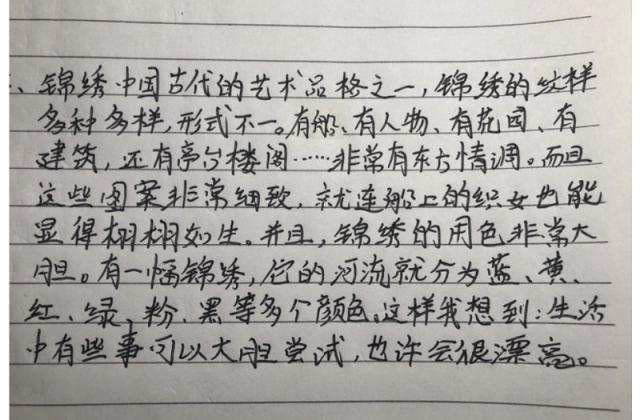 、锦绣中国古代的艺术品格之一，锦绣的纹样
多种多样，形式不一。有船、有人物、有花园、有
建筑，还有亭台楼阁……非常有东方情调。而且
这些图案非常细致，就连船上的织女也能
显得栩栩如生。并且，锦绣的用色非常大
胆。有一幅锦绣，它的河流就分为蓝、黄、
红、绿、粉、黑等多个颜色。这样我想到：生活
中有些事可以大胆尝试，也许会很漂亮。